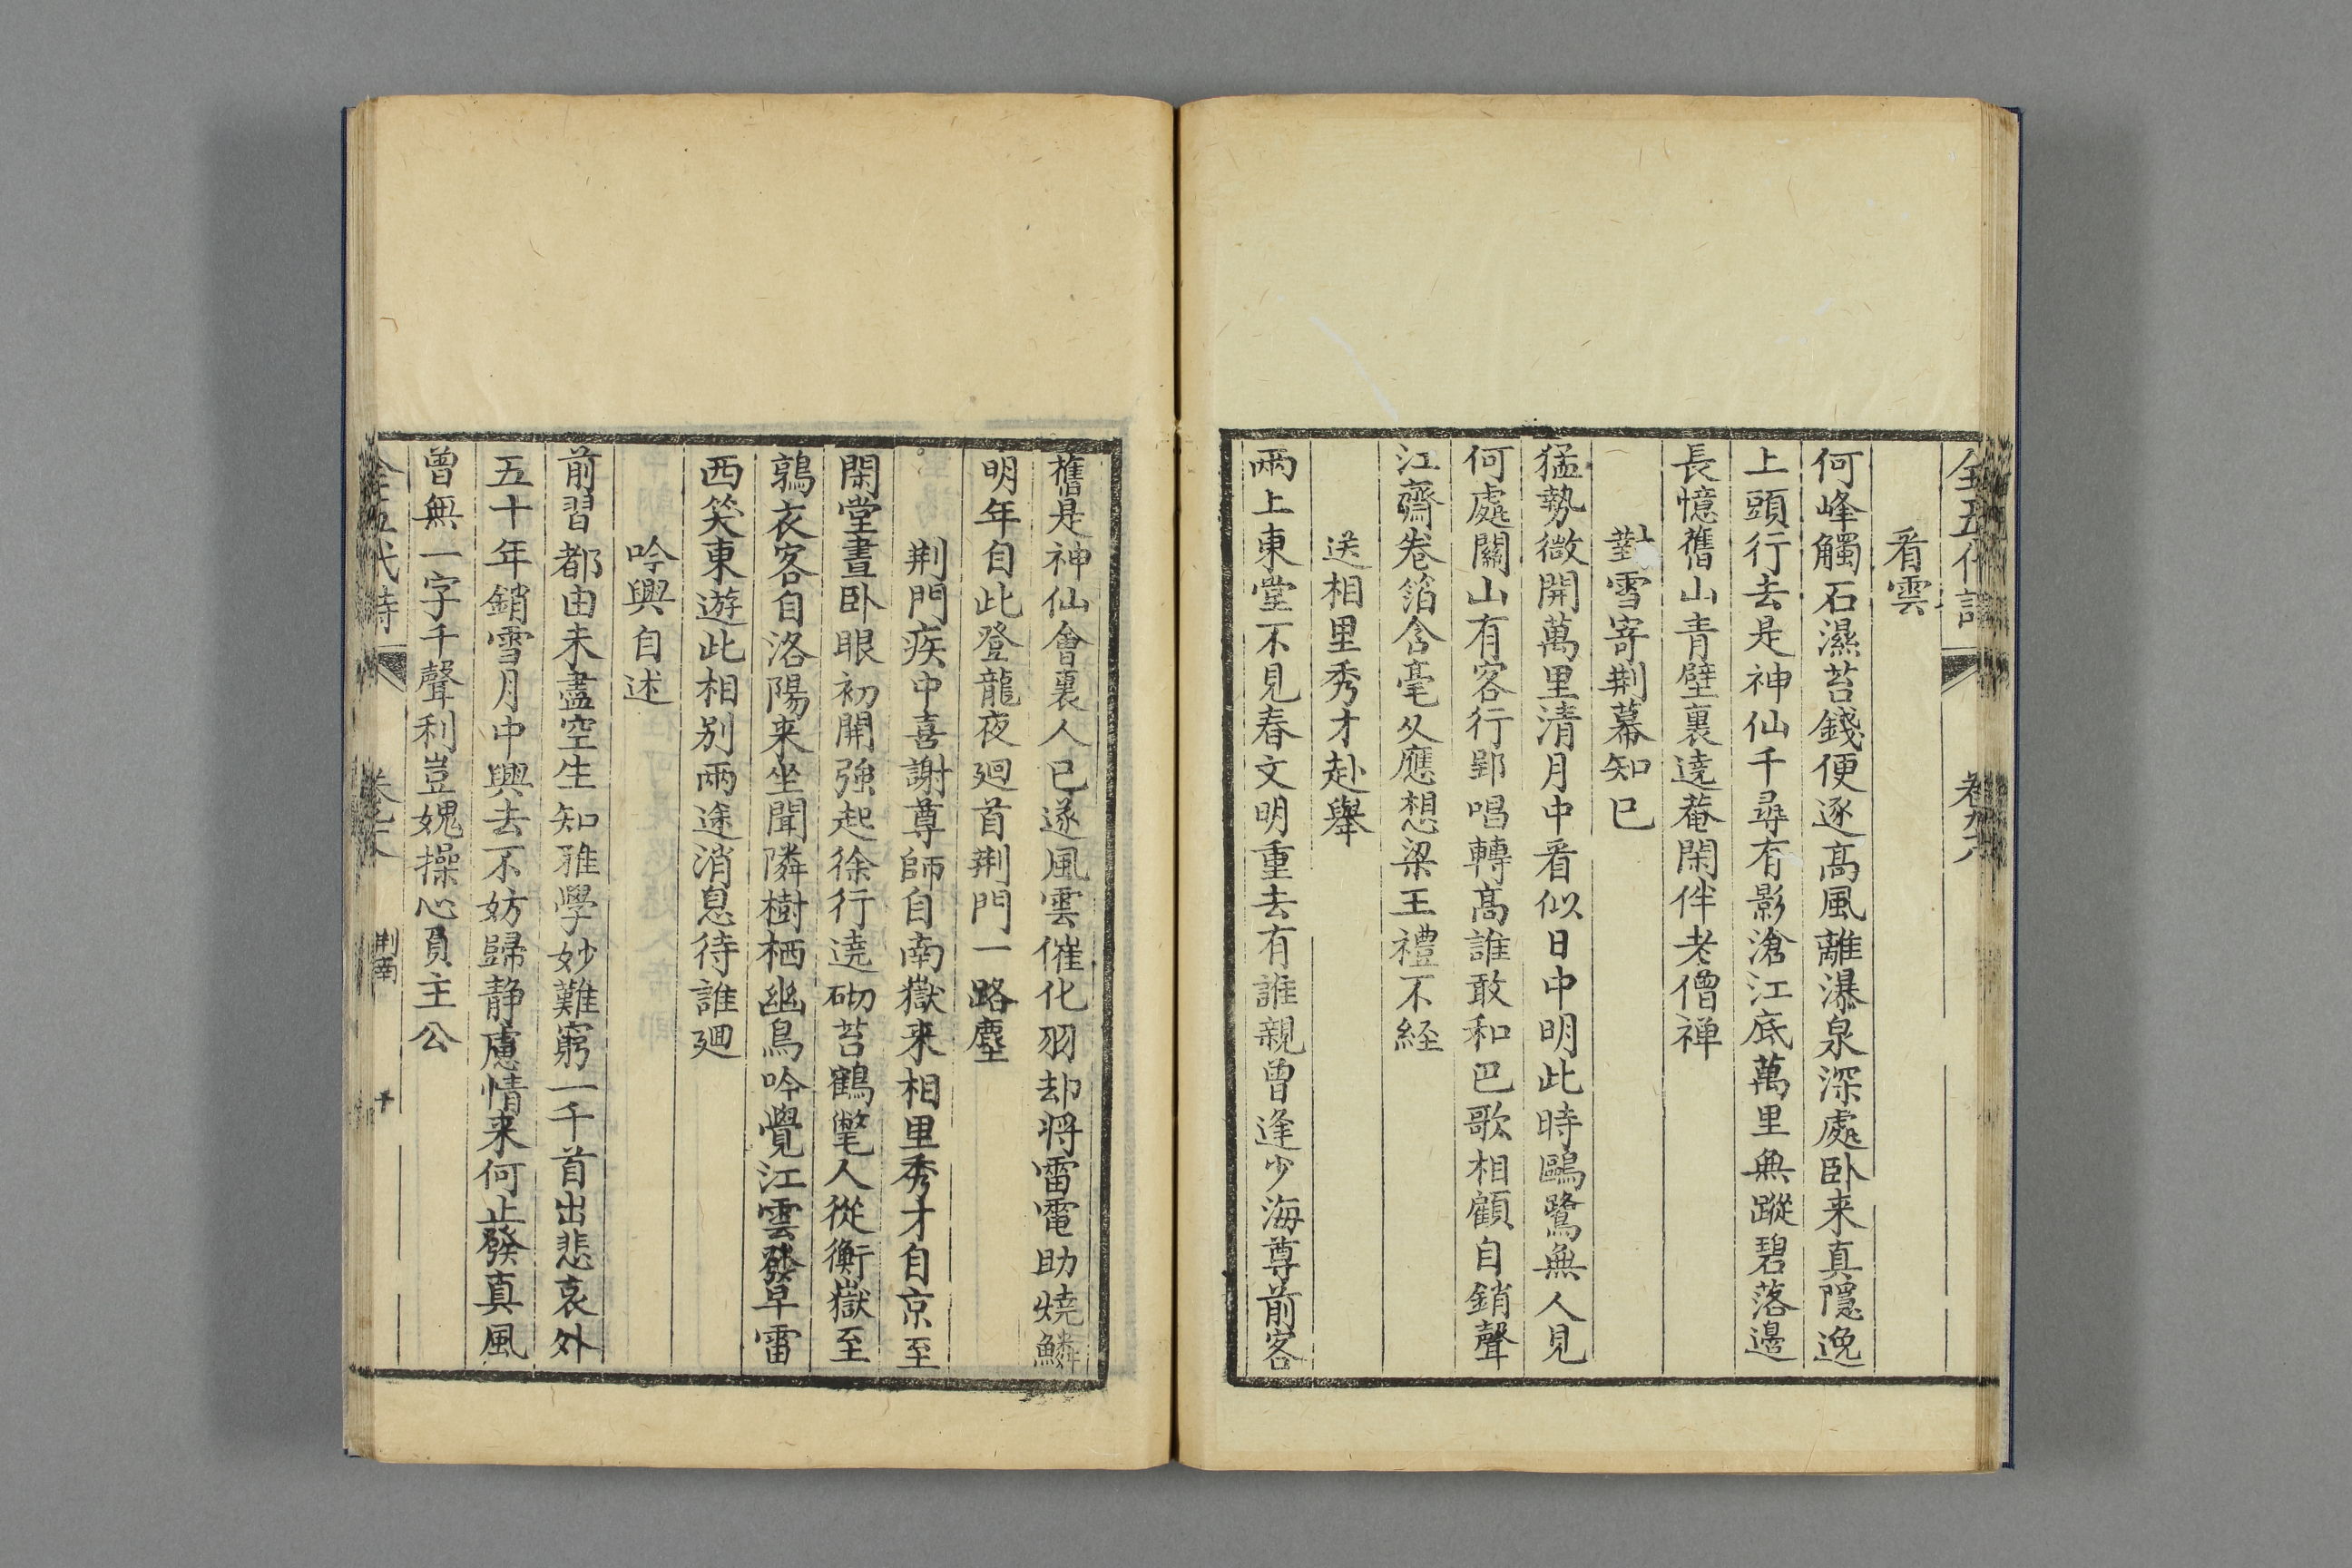 全五代詩
看雲
何峰觸石濕苔錢便逐高風離瀑泉深處卧来真隱逸
上頭行去是神仙千尋有影滄江底萬里無蹤碧落邊
長憶舊山青壁裏遶菴閑伴老僧禅
對雪寄荆幕知已
猛勢微開萬里清月中看似日中明此時鷗鷺無人見
何處關山有客行郢唱轉高誰敢和巴歌相顧自銷聲
江齋卷箔含毫久應想梁王禮不経
送相里秀才赴舉
兩上東堂不見春文明重去有誰親曾逢少海尊前客
舊是神仙會裏人已遂風雲催化羽却将雷電助燒鱗
明年自此登龍夜廻首荆門一路塵
荆門疾中喜謝尊師自南嶽来相里秀才自京至
閑堂晝卧眼初開強起徐行遶砌苔鶴氅人從衡嶽至
鶉衣客自洛陽来坐聞隣樹栖幽鳥吟覺江雲發早雷
西笑東遊此相别兩途消息待誰廻
吟興自述
前習都由未盡空生知雅學妙難窮一千首出悲哀外
五十年銷雪月中興去不妨歸静慮情来何止發真風
曾無一字千聲利豈媿操心負主公
全五代詩
荆南